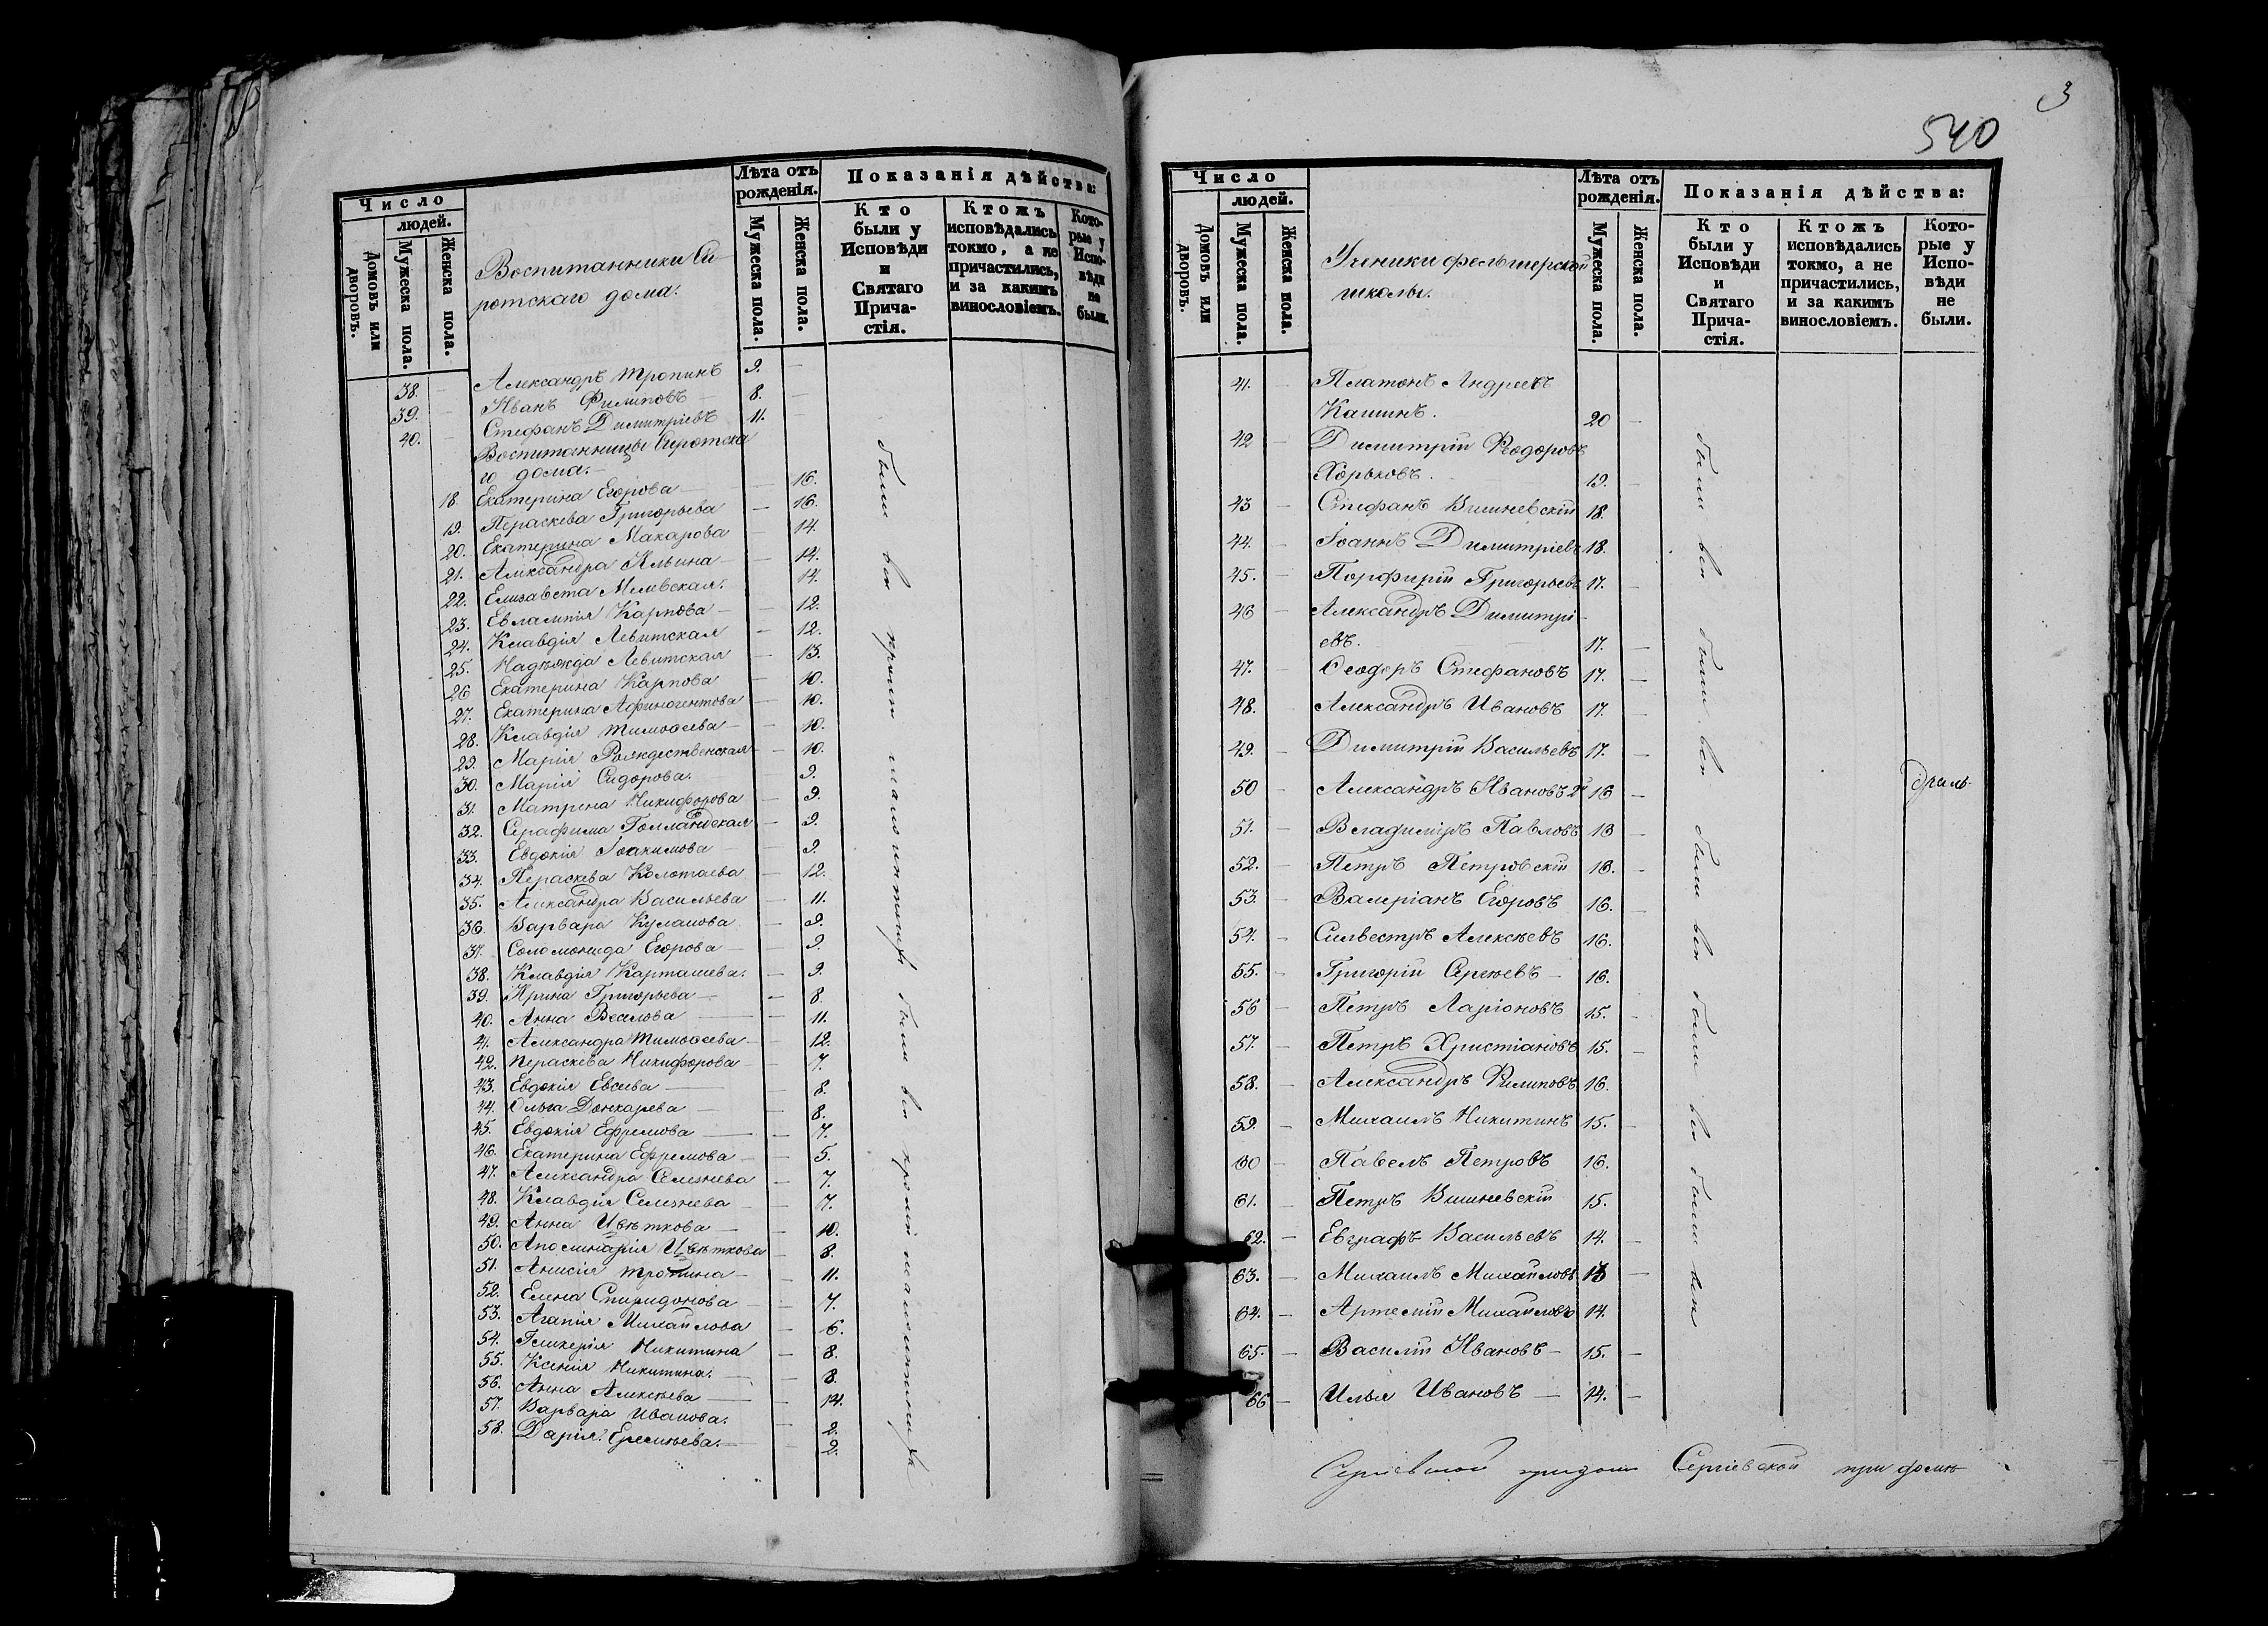 Число
людей.
Домовъ или дворовъ.
Мужеска пола.
Женска пола.
Воспитанники Си-
ротскаго дома.
Лѣта отъ рожденія.
Мужеска пола.
Женска пола.
Показанія дѣйства:
Кто были у Исповѣди и Святаго Прича-стія.
Ктожъ исповѣдались токмо, а не причастились, и за какимъ винословіемъ.
Кото-рые у Испо-вѣди не были.
38. Александръ Тропинъ 9.
39. Иванъ Филиповъ 8.
40. Стефанъ Димитріевъ 11.
Воспитанницы Сиротска
го дома.
18. Екатерина Егорова 16.
19. Параскева Григорьева 16.
20. Екатерина Макарова 14.
21. Александра Ильина 14.
22. Елизавета 14.
23. Евлампія Карпова 12.
24. Клавдія Левитская 12.
25. Надежда Левитская 13.
26 Екатерина Карпова 10.
27. Екатерина Афиногентова 10.
28. Клавдія Тимоѳеева 10.
29. Марія Рождественская 10.
30. Марія Сидорова. 9.
31. Матрена Никифорова 9.
32. Серафима Голландская 9.
33. Евдокія Іоакимова 9.
34. Параскева Колотаева 12.
35. Александра Васильева 11.
36. Варвара Кулапова 9.
37. Соломонида Егорова 9.
38. Клавдія Карташева. 9.
39. Ирина Григорьева 8.
40. Анна Веселова 11.
41. Александра Тимоѳеева 12.
42. Параскева Никифорова 7.
43. Евдокія Евсеева 8.
44. Ольга 8.
45. Евдокія Ефремова 7.
46. Екатерина Ефремова 5.
47. Александра Селезнева 7.
48. Клавдія Селезнева 7.
49. Анна Цвѣткова 10.
50. Аполинарія Цвѣткова 8.
51. Анисія Тропина 11.
52. Елена Спиридонова 7.
53. Агапія Михайлова 6.
54. Гликерія Никитина 8.
55. Ксенія Никитина. 8.
56. Анна Алексѣева 14.
57. Варвара Иванова. 2.
58. Дарія Еремѣева. 2.
были вси
были вси
3
540
Число
людей.
Домовъ или дворовъ.
Мужеска пола.
Женска пола.
Ученики фельшерской
школы.
Лѣта отъ рожденія.
Мужеска пола.
Женска пола.
Показанія дѣйства:
Кто были у Исповѣди и Святаго Прича-стія.
Ктожъ исповѣдались токмо, а не причастились, и за какимъ винословіемъ.
Кото-рые у Испо-вѣди не были.
41. Платонъ Андреевъ
Кашинъ. 20
42 Димитрій Ѳеодоровъ
Хорьковъ. 19.
43 Стефанъ Вишневскій 18.
44. Іоаннъ Димитріевъ 18.
45. Порфирій Григорьевъ 17.
46 Александръ Димитрі-
евъ. 17.
47. Ѳеодоръ Стефановъ 17.
48. Александръ Ивановъ 17.
49. Димитрій Васильевъ 17.
50 Александръ Ивановъ 2й 16
51. Владиміръ Павловъ 16
52. Петръ Петровскій 16.
53. Валеріанъ Егоровъ 16.
54. Сильвестръ Алексѣевъ 16.
55. Григорій Сергѣевъ 16.
56 Петръ Ларіоновъ 15.
57. Петръ Христіановъ 15.
58. Александръ Филиповъ 16.
59. Михаилъ Никитинъ 15.
60 Павелъ Петровъ 16.
61. Петръ Вишневскій 15.
62. Евграфъ Васильевъ 14.
63. Михаилъ Михайловъ
64. Артемій Михайловъ 14.
65. Василій Ивановъ 15.
66 Илья Ивановъ 14.
были вси были вси были вси были вси были вси
Сергіевской при домѣ